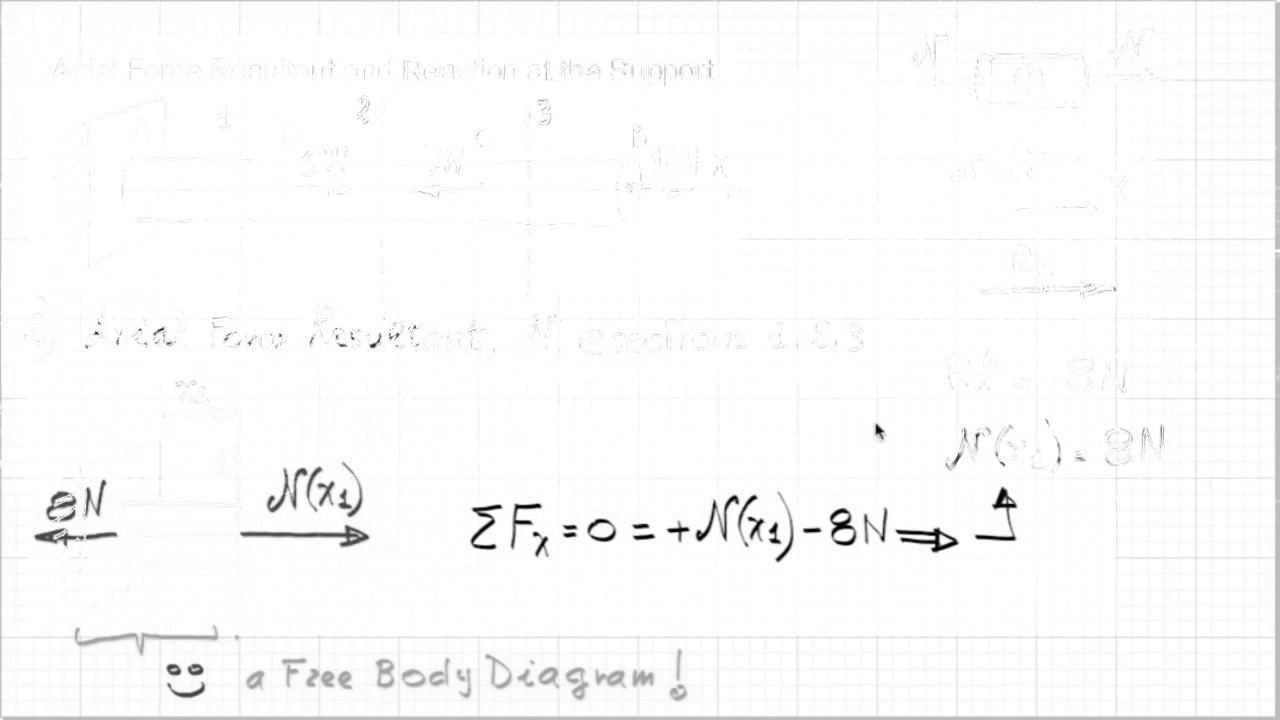 Axial Force Resultant and Reaction at the Support
N N
1 2 3
A D C B
x
x
2) Axial Force Resultant, N, @ sections 1, 2, 3
8N
N(x₁) = 8N
8N N(x₁)
ΣFₓ = 0 = +N(x₁) - 8N ⇒
1
a Free Body Diagram!